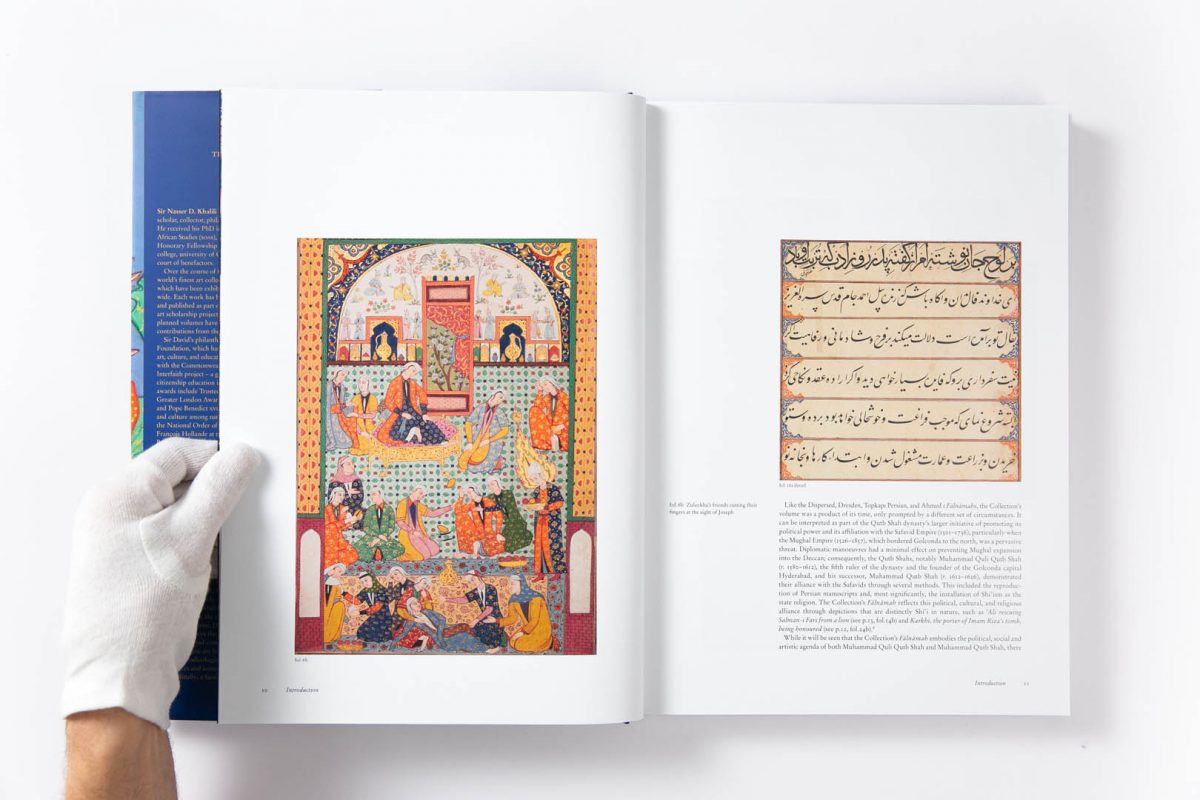 TH
Sir Nasser D. Khalili
scholar, collector, phil
He received his PhD
African Studies (SOAS),
Honorary Fellowship
college, university of
court of benefactors.
Over the course of
world's finest art colle
which have been exhib
wide. Each work has
and published as part
art scholarship project
planned volumes have
contributions from the
Sir David's philanth
Foundation, which ha
art, culture, and educat
with the Commonwe
Interfaith project – a g
citizenship education
awards include Trustee
Greater London Awa
and Pope Benedict XVI
and culture among nat
the National Order of
François Hollande at
fol. 4b
10 Introduction
ی خداوند فال بدان و آگاه باش که زنده پیل احمد جام قدس سره العزیز
حال تو برآمده است دلالت میکند بر فرح و شادمانی و رفاهیت
نیت سفر داری برو که فایده بسیار خواهی دید و اگر اراده عقد و نکاحی
شروع نمای که موجب فراغت و خوشحالی خواهد بود برده و
خریدن و زراعت و عمارت مشغول شدن و ابتدا کارها و
fol. 18a detail
fol. 4b Zulaykha's friends cutting their
fingers at the sight of Joseph
Like the Dispersed, Dresden, Topkapı Persian, and Ahmed I Fālnāmahs, the Collection's
volume was a product of its time, only prompted by a different set of circumstances. It
can be interpreted as part of the Qutb Shah dynasty's larger initiative of promoting its
political power and its affiliation with the Safavid Empire (1501–1736), particularly when
the Mughal Empire (1526–1857), which bordered Golconda to the north, was a pervasive
threat. Diplomatic manoeuvres had a minimal effect on preventing Mughal expansion
into the Deccan; consequently, the Qutb Shahs, notably Muhammad Quli Qutb Shah
(r. 1580–1612), the fifth ruler of the dynasty and the founder of the Golconda capital
Hyderabad, and his successor, Muhammad Qutb Shah (r. 1612–1626), demonstrated
their alliance with the Safavids through several methods. This included the reproduc-
tion of Persian manuscripts and, most significantly, the installation of Shi'ism as the
state religion. The Collection's Fālnāmah reflects this political, cultural, and religious
alliance through depictions that are distinctly Shi'i in nature, such as 'Ali rescuing
Salman-i Fars from a lion (see p.15, fol.14b) and Karkhi, the porter of Imam Riza's tomb,
being honoured (see p.12, fol.24b).
While it will be seen that the Collection's Fālnāmah embodies the political, social and
artistic agenda of both Muhammad Quli Qutb Shah and Muhammad Qutb Shah, there
Introduction 11